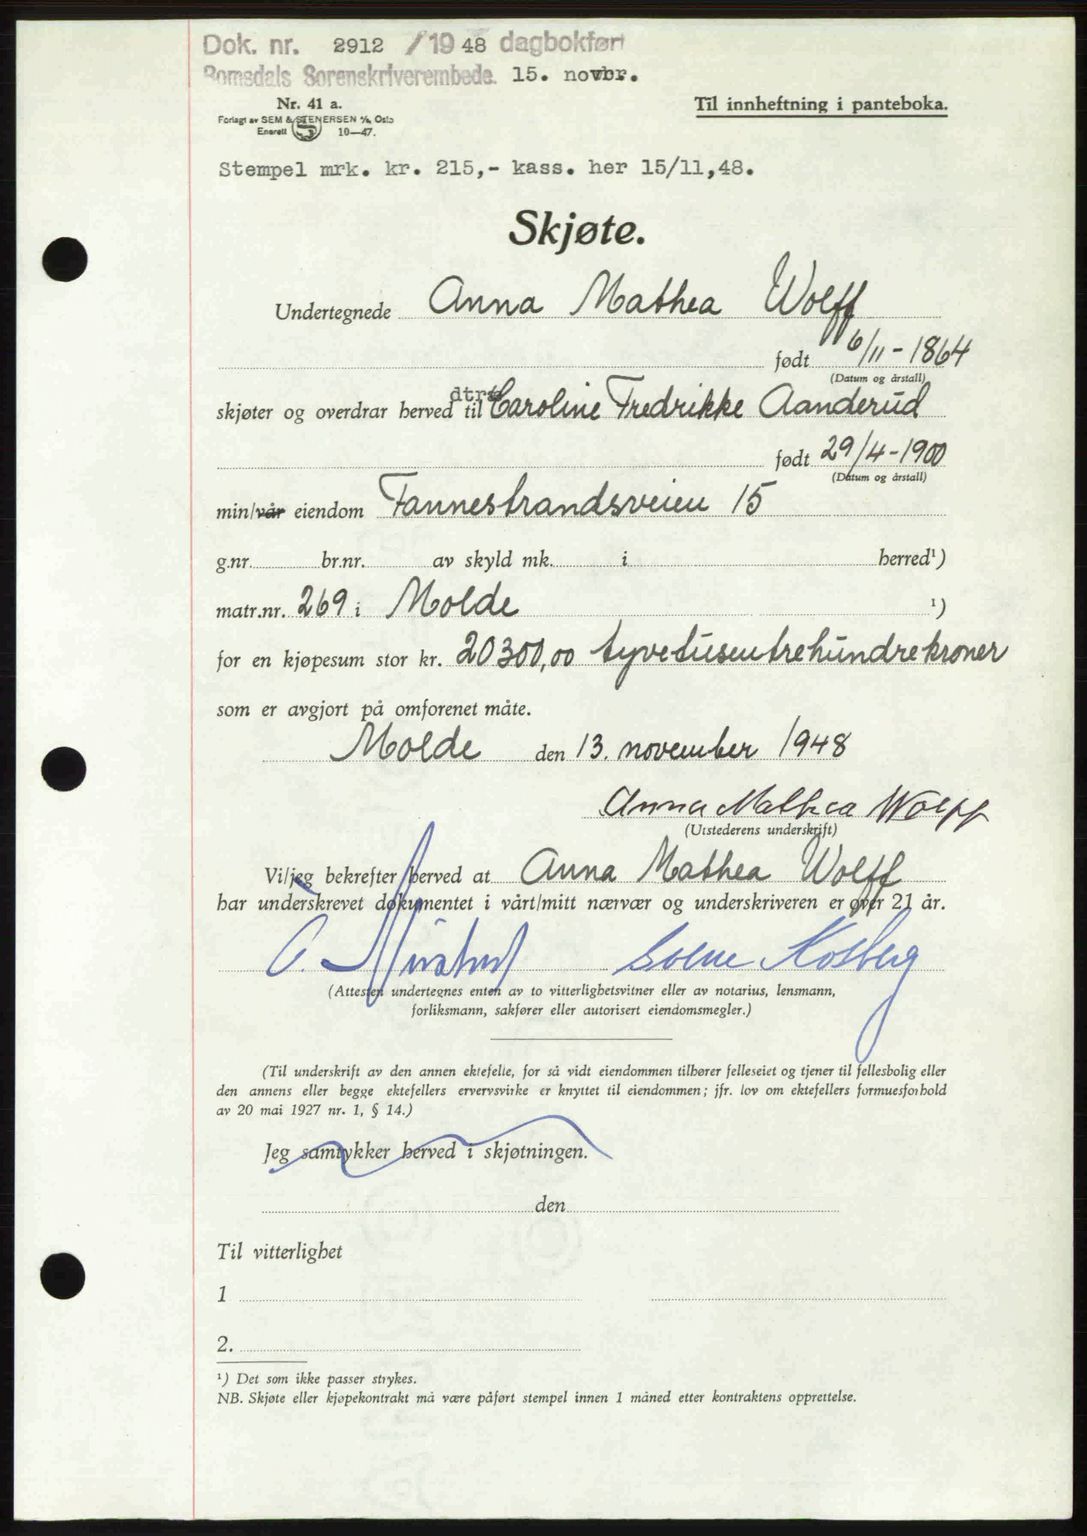 Dok. nr. 2912 /1948 dagbokført
Romsdals Sorenskriverembede. 15. novbr.
Nr. 41 a.
Forlagt av SEM & STENERSEN A/S, Oslo
Enerett 10—47.
Til innheftning i panteboka.
Stempel mrk. kr. 215,- kass. her 15/11,48.
Skjøte.
Undertegnede Anna Mathea Wolff
født 6/11-1864
(Datum og årstall)
skjøter og overdrar herved til Caroline Fredrikke Aanderud
født 29/4-1900
(Datum og årstall)
min/vår eiendom Fannestrandsveien 15
g.nr. br.nr. av skyld mk. i herred¹)
matr.nr. 269 i Molde ¹)
for en kjøpesum stor kr. 20300,00 tyvetusentrehundrekroner
som er avgjort på omforenet måte.
Molde den 13. november 1948
Anna Mathea Wolff
(Utstederens underskrift)
Vi/jeg bekrefter herved at Anna Mathea Wolff
har underskrevet dokumentet i vårt/mitt nærvær og underskriveren er over 21 år.
(Attesten undertegnes enten av to vitterlighetsvitner eller av notarius, lensmann,
forliksmann, sakfører eller autorisert eiendomsmegler.)
(Til underskrift av den annen ektefelle, for så vidt eiendommen tilhører felleseiet og tjener til fellesbolig eller
den annens eller begge ektefellers ervervsvirke er knyttet til eiendommen; jfr. lov om ektefellers formuesforhold
av 20 mai 1927 nr. 1, § 14.)
Jeg samtykker herved i skjøtningen.
den
Til vitterlighet
1
2.
¹) Det som ikke passer strykes.
NB. Skjøte eller kjøpekontrakt må være påført stempel innen 1 måned etter kontraktens opprettelse.